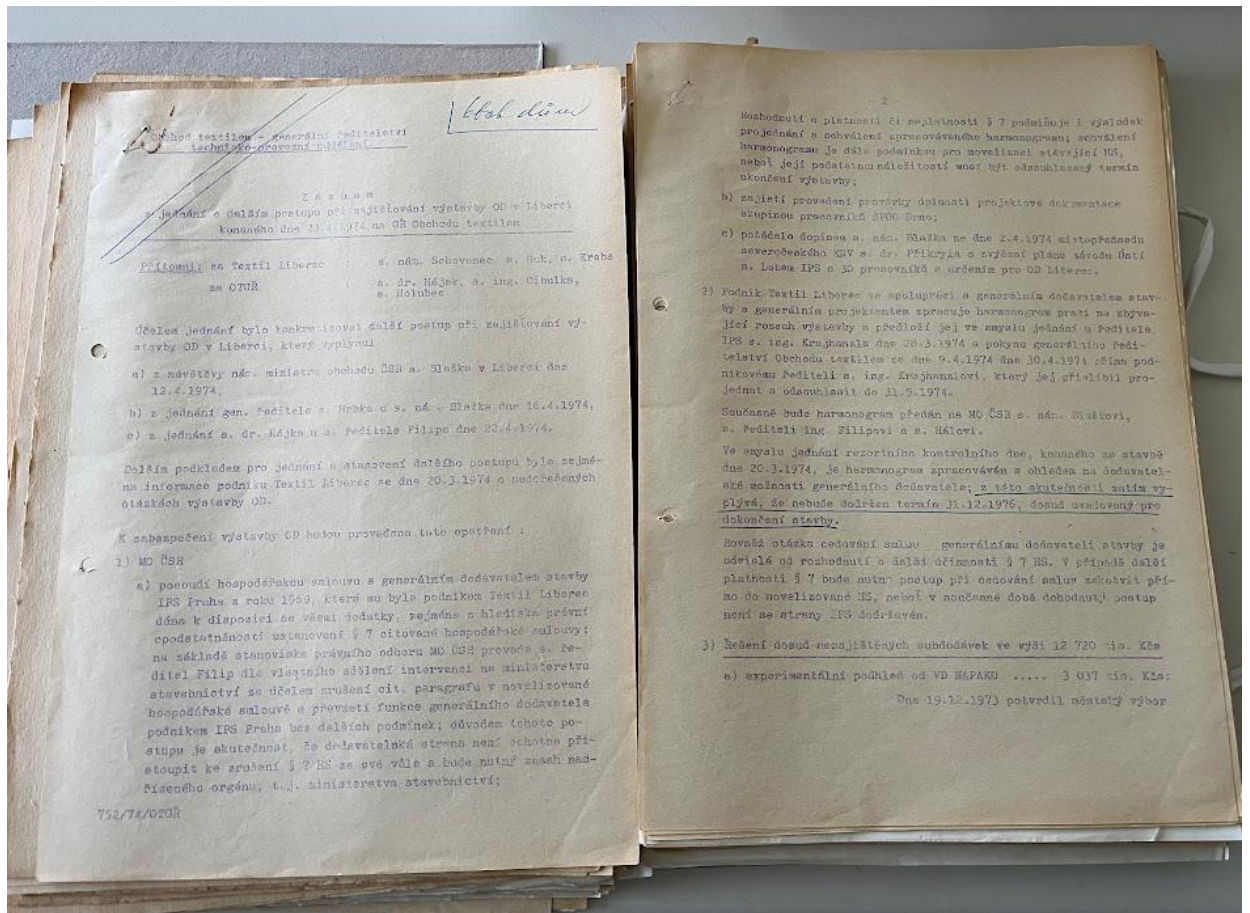 Obchod textilem - generální ředitelství
technicko-provozní oddělení
Obch dům
Z á z n a m
z jednání o dalším postupu při zajišťování výstavby OD v Liberci
konaného dne 23.4.1974 na GŘ Obchodu textilem
Přítomni: za Textil Liberec : s. nám. Schovanec, s. Huk, s. Krebs
za OTGŘ : s. dr. Hájek, s. ing. Cibulka,
s. Holubec
Účelem jednání bylo konkretizovat další postup při zajišťování vý-
stavby OD v Liberci, který vyplynul
a) z návštěvy nám. ministra obchodu ČSR s. Blažka v Liberci dne
12.4.1974,
b) z jednání gen. ředitele s. Hrbka u s. nám. Blažka dne 16.4.1974,
c) z jednání s. dr. Hájka u s. ředitele Filipa dne 22.4.1974.
Dalším podkladem pro jednání a stanovení dalšího postupu byla zejmé-
na informace podniku Textil Liberec ze dne 20.3.1974 o nedořešených
otázkách výstavby OD.
K zabezpečení výstavby OD budou provedena tato opatření :
1) MO ČSR
a) posoudí hospodářskou smlouvu s generálním dodavatelem stavby
IPS Praha z roku 1969, která mu byla podnikem Textil Liberec
dána k dispozici se všemi dodatky, zejména z hlediska právní
opodstatněnosti ustanovení § 7 citované hospodářské smlouvy;
na základě stanoviska právního odboru MO ČSR provede s. ře-
ditel Filip dle vlastního sdělení intervenci na ministerstvu
stavebnictví za účelem zrušení cit. paragrafu v novelizované
hospodářské smlouvě a převzetí funkce generálního dodavatele
podnikem IPS Praha bez dalších podmínek; důvodem tohoto po-
stupu je skutečnost, že dodavatelská strana není ochotna při-
stoupit ke zrušení § 7 HS ze své vůle a bude nutný zásah nad-
řízeného orgánu, t.j. ministerstva stavebnictví;
752/74/OTGŘ
2
Rozhodnutí o platnosti či neplatnosti § 7 podmiňuje i výsledek
projednání a schválení zpracovávaného harmonogramu; schválení
harmonogramu je dále podmínkou pro novelizaci stávající HS,
neboť její podstatnou náležitostí musí být odsouhlasený termín
ukončení výstavby;
b) zajistí provedení prověrky úplnosti projektové dokumentace
skupinou pracovníků SPOO Brno;
c) požádalo dopisem s. nám. Blažka ze dne 2.4.1974 místopředsedu
severočeského KNV s. dr. Přikryla o zvýšení plánu závodu Ústí
n. Labem IPS o 30 pracovníků s určením pro OD Liberec.
2) Podnik Textil Liberec ve spolupráci s generálním dodavatelem stav-
by a generálním projektantem zpracuje harmonogram prací na zbýva-
jící rozsah výstavby a předloží jej ve smyslu jednání u ředitele
IPS s. ing. Krajhanzla dne 28.3.1974 a pokynu generálního ředi-
telství Obchodu textilem ze dne 9.4.1974 dne 30.4.1974 přímo pod-
nikovému řediteli s. ing. Krajhanzlovi, který jej přislíbil pro-
jednat a odsouhlasit do 31.5.1974.
Současně bude harmonogram předán na MO ČSR s. nám. Blažkovi,
s. řediteli ing. Filipovi a s. Hálovi.
Ve smyslu jednání rezortního kontrolního dne, konaného na stavbě
dne 20.3.1974, je harmonogram zpracováván s ohledem na dodavatel-
ské možnosti generálního dodavatele; z této skutečnosti zatím vy-
plývá, že nebude dodržen termín 31.12.1976, dosud uvažovaný pro
dokončení stavby.
Rovněž otázka cedování smluv generálnímu dodavateli stavby je
odvislá od rozhodnutí o další účinnosti § 7 HS. V případě další
platnosti § 7 bude nutno postup při cedování smluv zakotvit pří-
mo do novelizované HS, neboť v současné době dohodnutý postup
není se strany IPS dodržován.
3) Řešení dosud nezajištěných subdodávek ve výši 12 720 tis. Kčs
a) experimentální podhled od VD NAPAKO ..... 3 037 tis. Kčs:
Dne 19.12.1973 potvrdil městský výbor